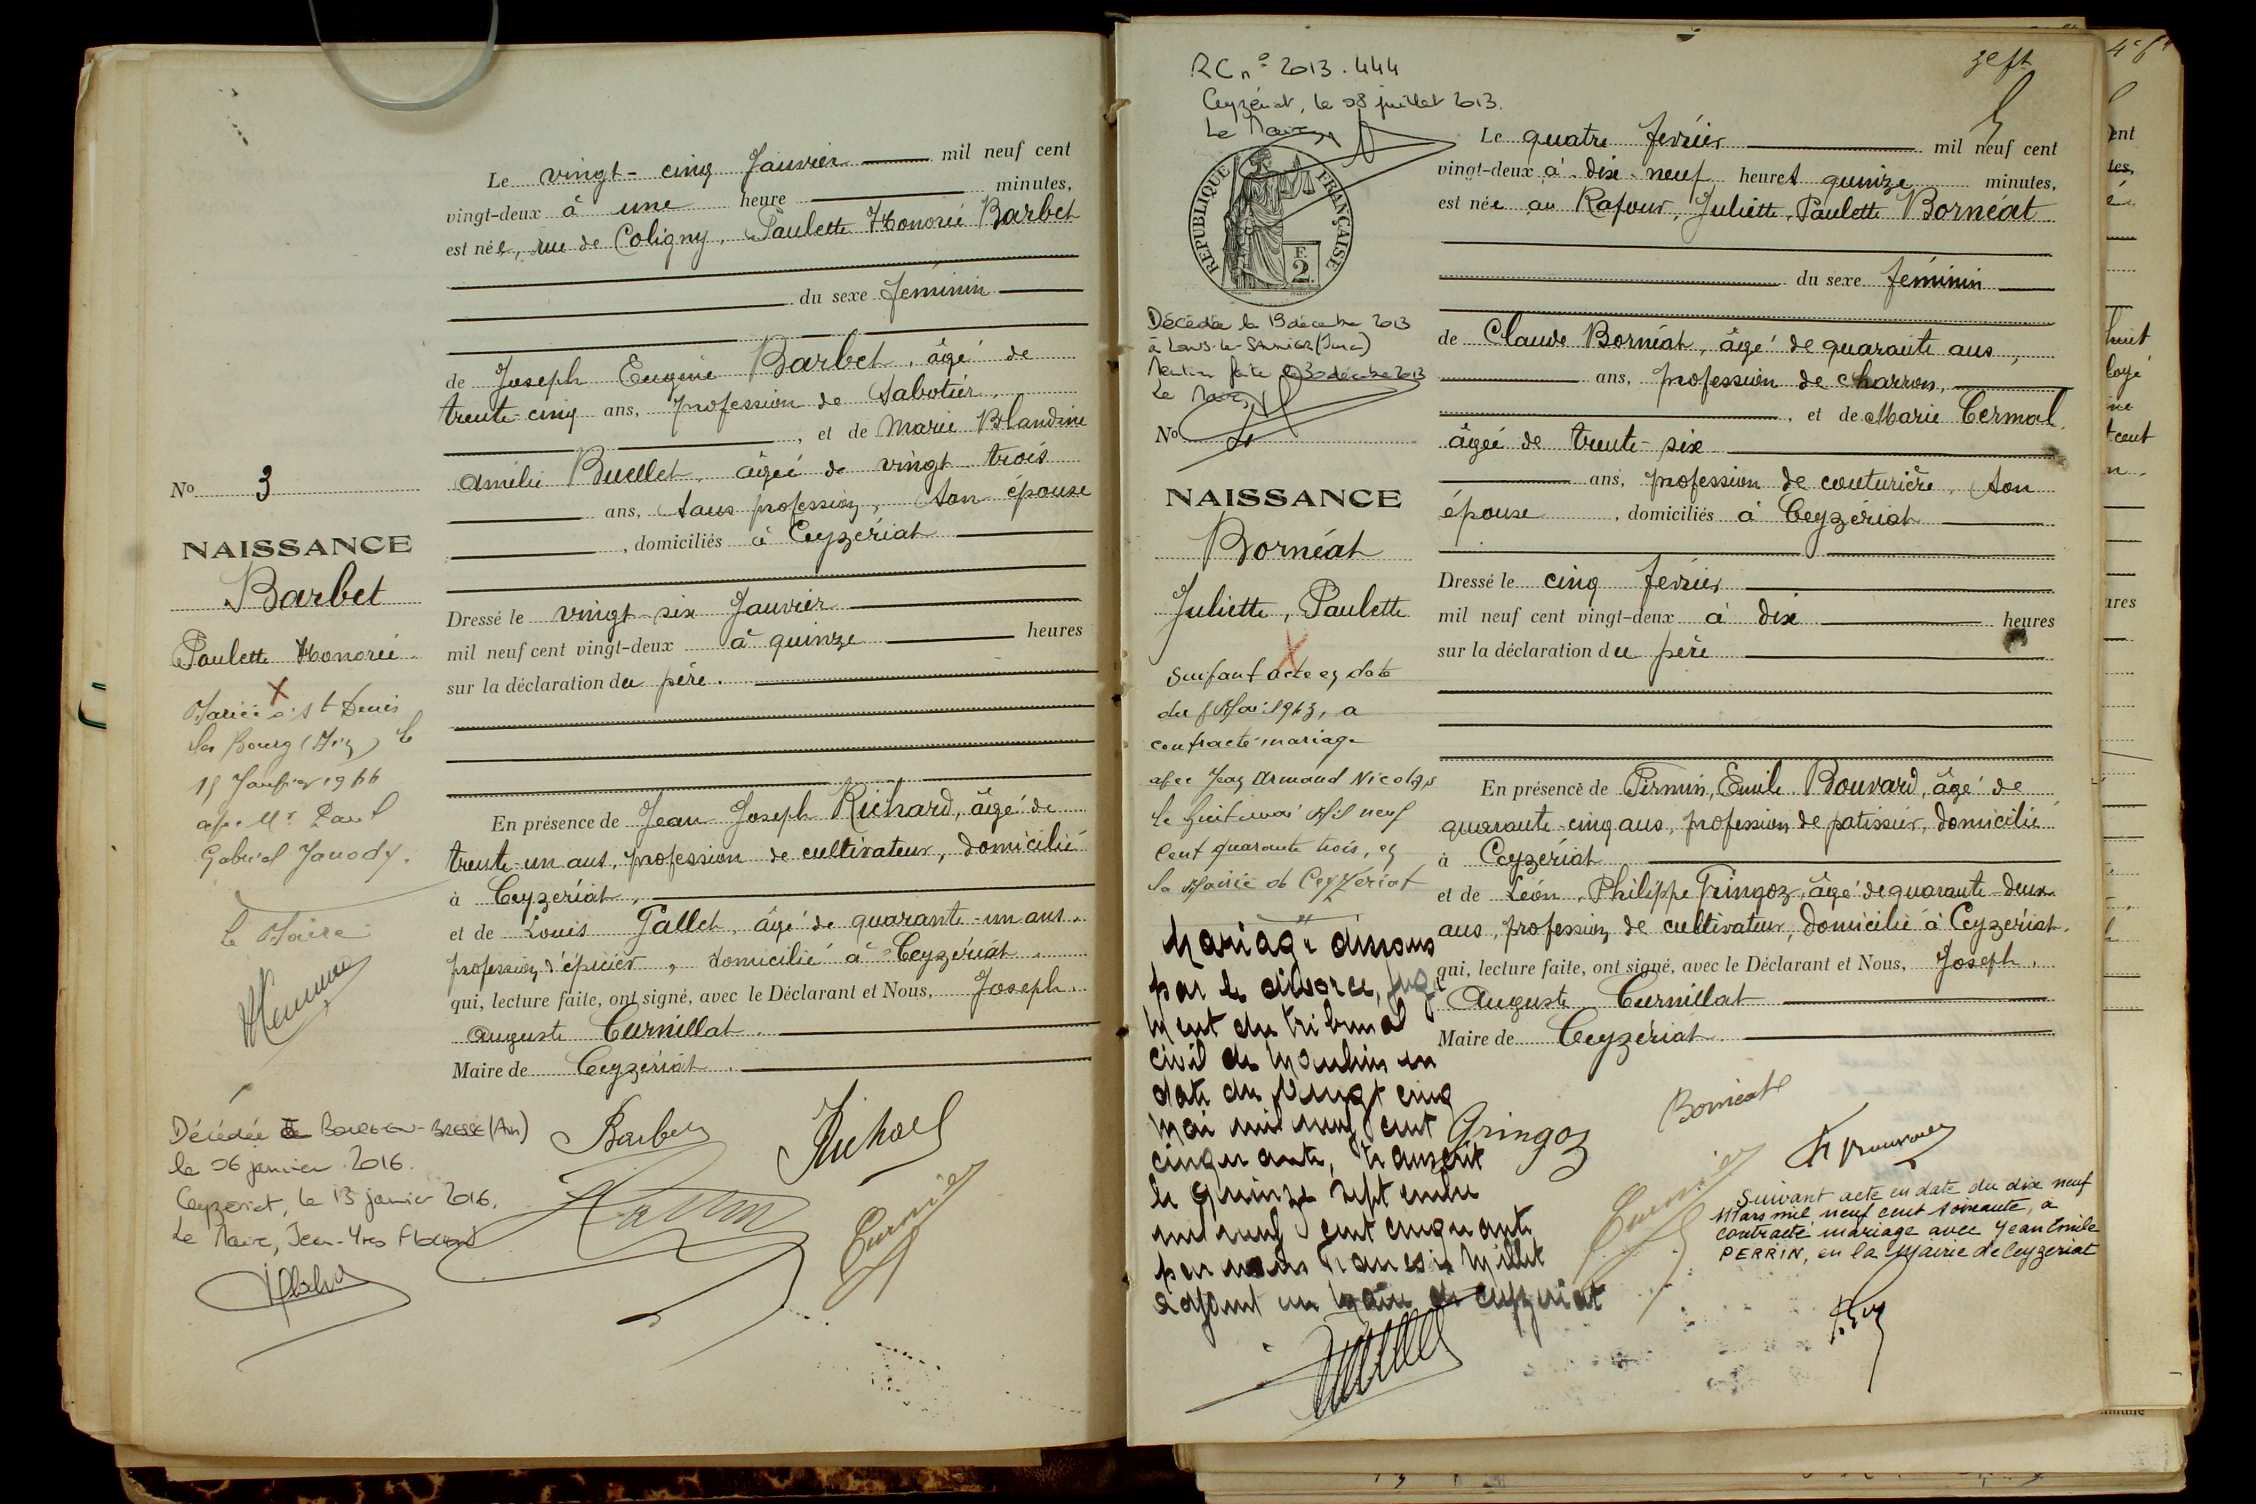 Le vingt-cinq Janvier mil neuf cent
vingt-deux à une heure minutes,
est née, rue de Coligny, Paulette Honorée Barbet
du sexe féminin
de Joseph Eugène Barbet, âgé de
trente-cinq ans, profession de Sabotier,
, et de Marie Blandine
Amélie Buellet, âgée de vingt trois
ans, sans profession, son épouse
, domiciliés à Ceyzériat
Dressé le vingt-six Janvier
mil neuf cent vingt-deux à quinze heures
sur la déclaration du père.
En présence de Jean Joseph Richard, âgé de
trente-un ans, profession de cultivateur, domicilié
à Ceyzériat,
et de Louis Gallet, âgé de quarante-un ans,
profession d'épicier, domicilié à Ceyzériat.
qui, lecture faite, ont signé, avec le Déclarant et Nous, Joseph,
Auguste Curnillat
Maire de Ceyzériat.
No 3
NAISSANCE
Barbet
Paulette Honorée
X
Mariée à St Denis
les Bourg (Ain) le
15 Janvier 1944
avec Mr Paul
Gabriel Janody.
Le Maire
Décédée à BOURG-EN-BRESSE (Ain)
le 06 janvier 2016.
Ceyzeriat, le 13 janvier 2016.
Le Maire, Jean-Yves Flochon
Barbet
Richard
RC n° 2013.444
Ceyzériat, le 08 juillet 2013.
Le Maire,
RÉPUBLIQUE FRANÇAISE
F.
2
3e ft
Décédée le 19 décembre 2013
à LONS-le-SAUNIER (Jura)
Mention faite le 30 décembre 2013
Le Maire,
No 4
NAISSANCE
Bornéat
Juliette, Paulette
X
Suivant acte en date
du 8 Mai 1943, a
contracté mariage
avec Jean Armand Nicolas
le huit mai Mil neuf
cent quarante trois, en
la Mairie de Ceyzériat
Mariage dissous
par le divorce, juge
ment du tribunal
civil de Moulins en
date du Vingt cinq
Mai mil neuf cent
cinquante, transcrit
le quinze septembre
mil neuf cent cinquante
par nous Francis Millet
adjoint au Maire de Ceyzériat
Le quatre février mil neuf cent
vingt-deux à dix-neuf heures quinze minutes,
est née au Rafour, Juliette, Paulette Bornéat
du sexe féminin
de Claude Bornéat, âgé de quarante ans,
ans, profession de charron,
, et de Marie Cermal
âgée de trente-six
ans, profession de couturière, son
épouse, domiciliés à Ceyzériat
Dressé le cinq février
mil neuf cent vingt-deux à dix heures
sur la déclaration du père
En présence de Firmin, Emile Bouvard, âgé de
quarante-cinq ans, profession de patissier, domicilié
à Ceyzériat
et de Léon, Philippe Gringoz, âgé de quarante-deux
ans, profession de cultivateur, domicilié à Ceyzériat.
qui, lecture faite, ont signé, avec le Déclarant et Nous, Joseph,
Auguste Curnillat
Maire de Ceyzériat
Bornéat
Gringoz
Suivant acte en date du dix neuf
Mars mil neuf cent soixante, a
contracté mariage avec Jean Emile
PERRIN, en la Mairie de Ceyzeriat